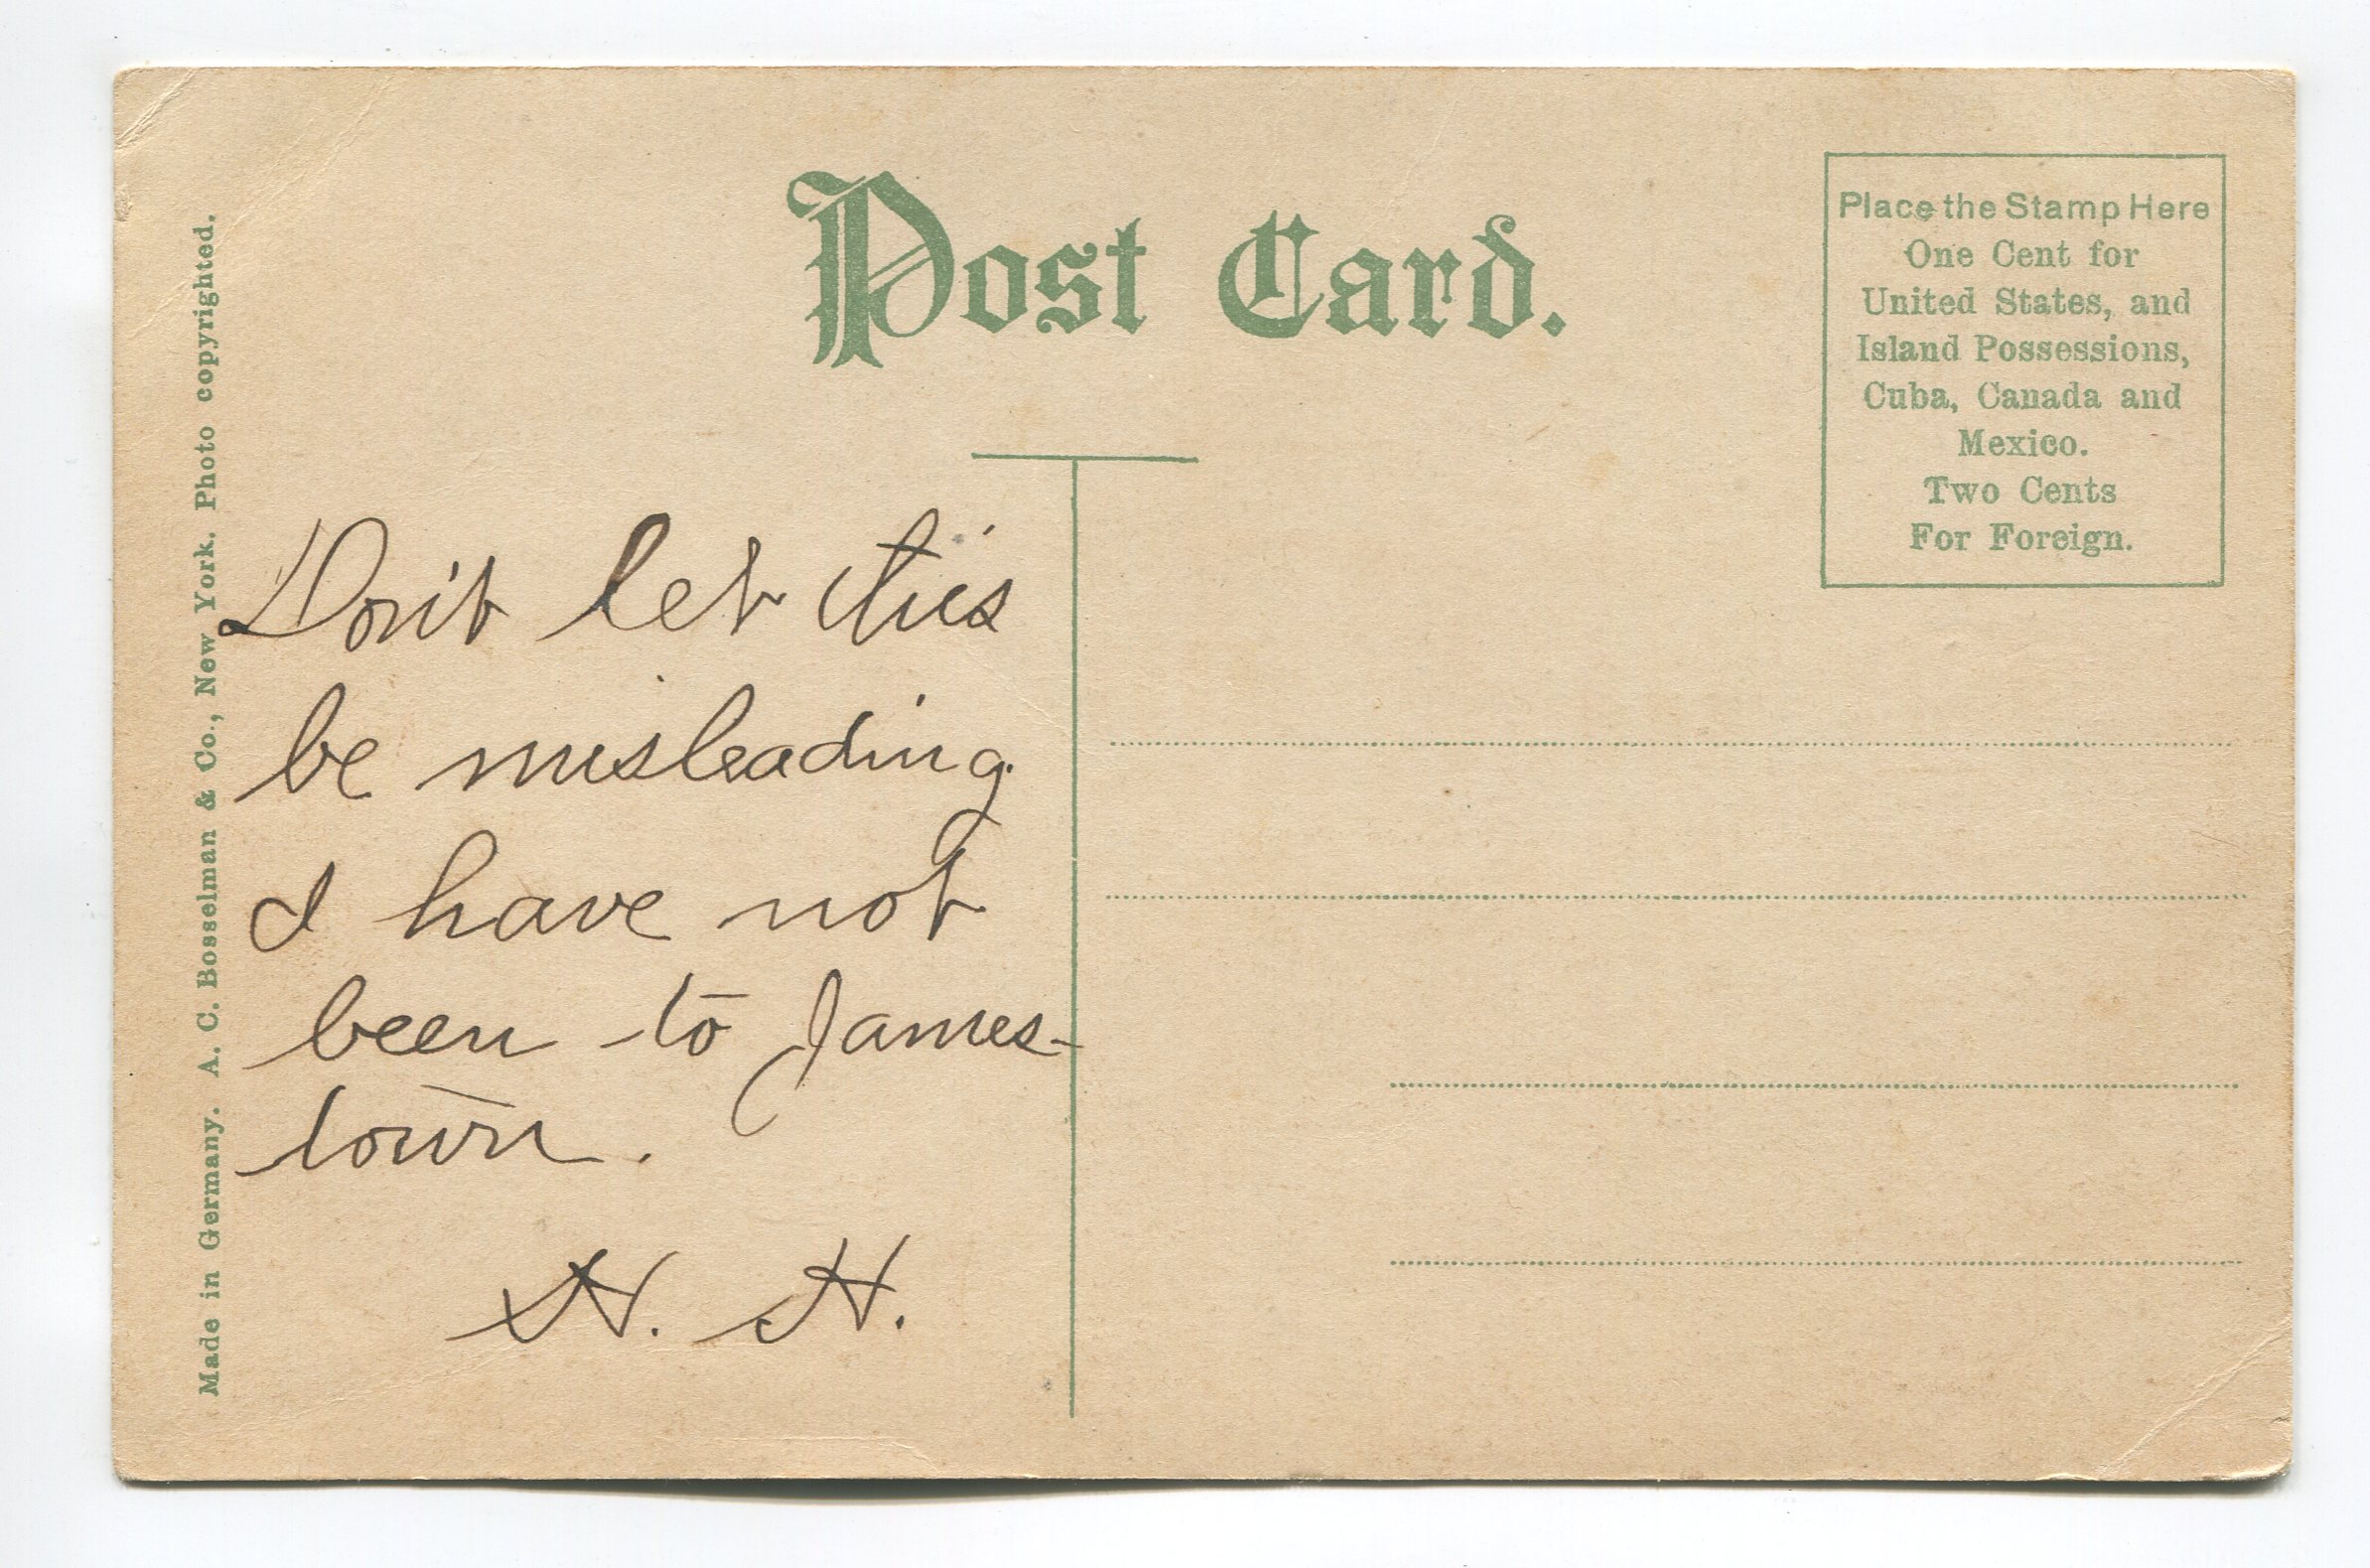 Post Card.
Place the Stamp Here
One Cent for
United States, and
Island Possessions,
Cuba, Canada and
Mexico.
Two Cents
For Foreign.
Made in Germany. A. C. Bosselman & Co., New York. Photo copyrighted.
Don't let this
be misleading.
I have not
been to James-
town.
H. H.